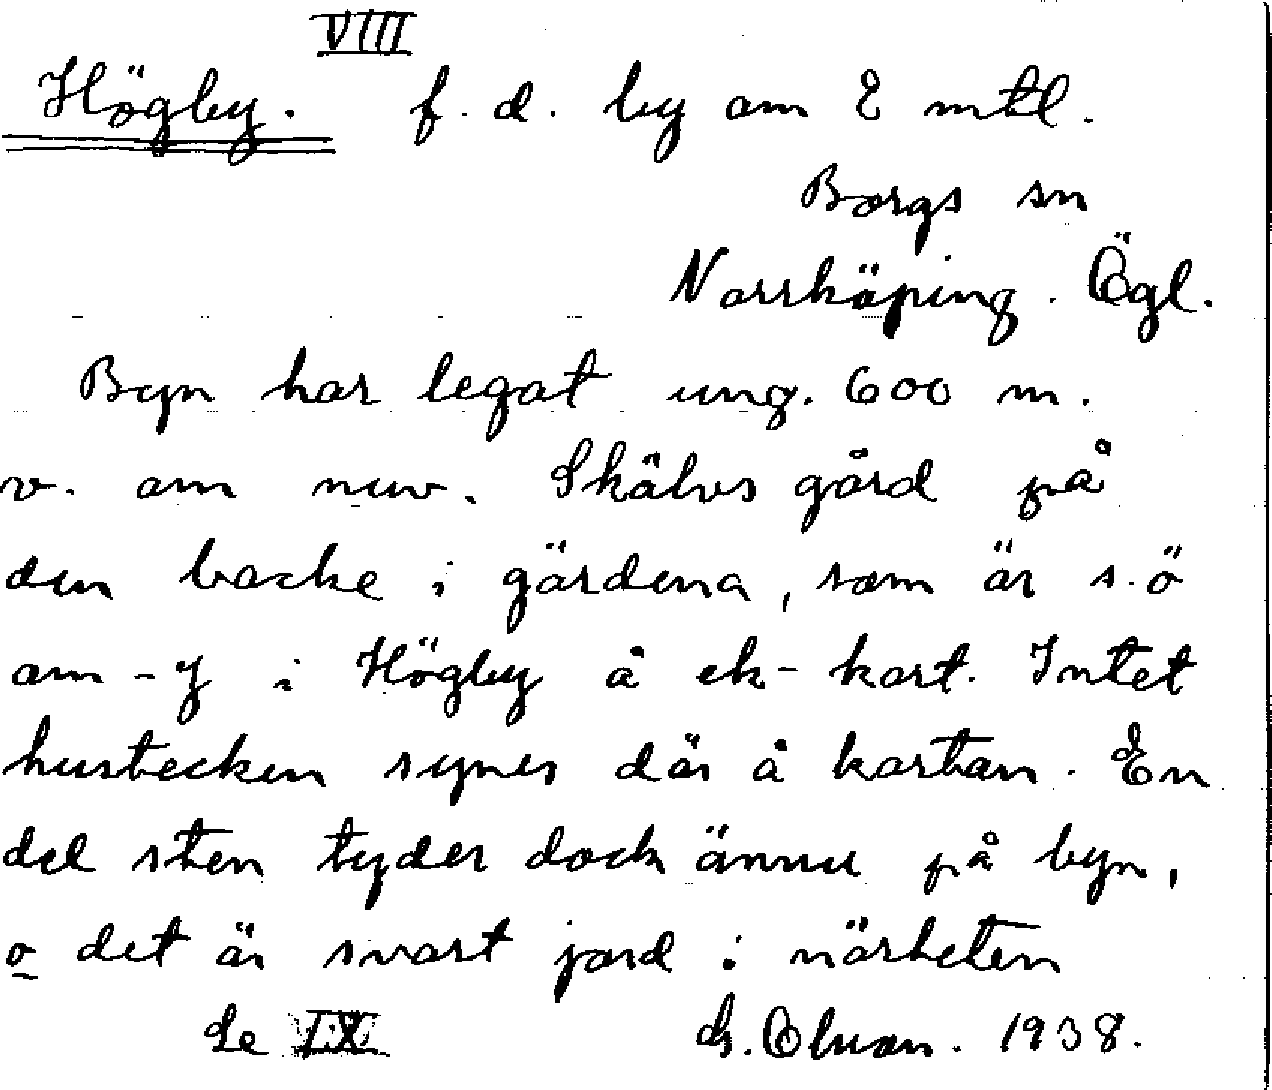 VIII
Högby. f. d. by om 8 mtl.
Borgs sn
Norrköping. Ögl.
Byn har legat ung. 600 m.
v. om nuv. Skälvs gård på
den backe i gärdena, som är s.ö
om -y i Högby å ek-kart. Intet
hustecken synes där å kartan. En
del sten tyder dock ännu på byn,
o det är svart jord i närheten
Se IX 1938.